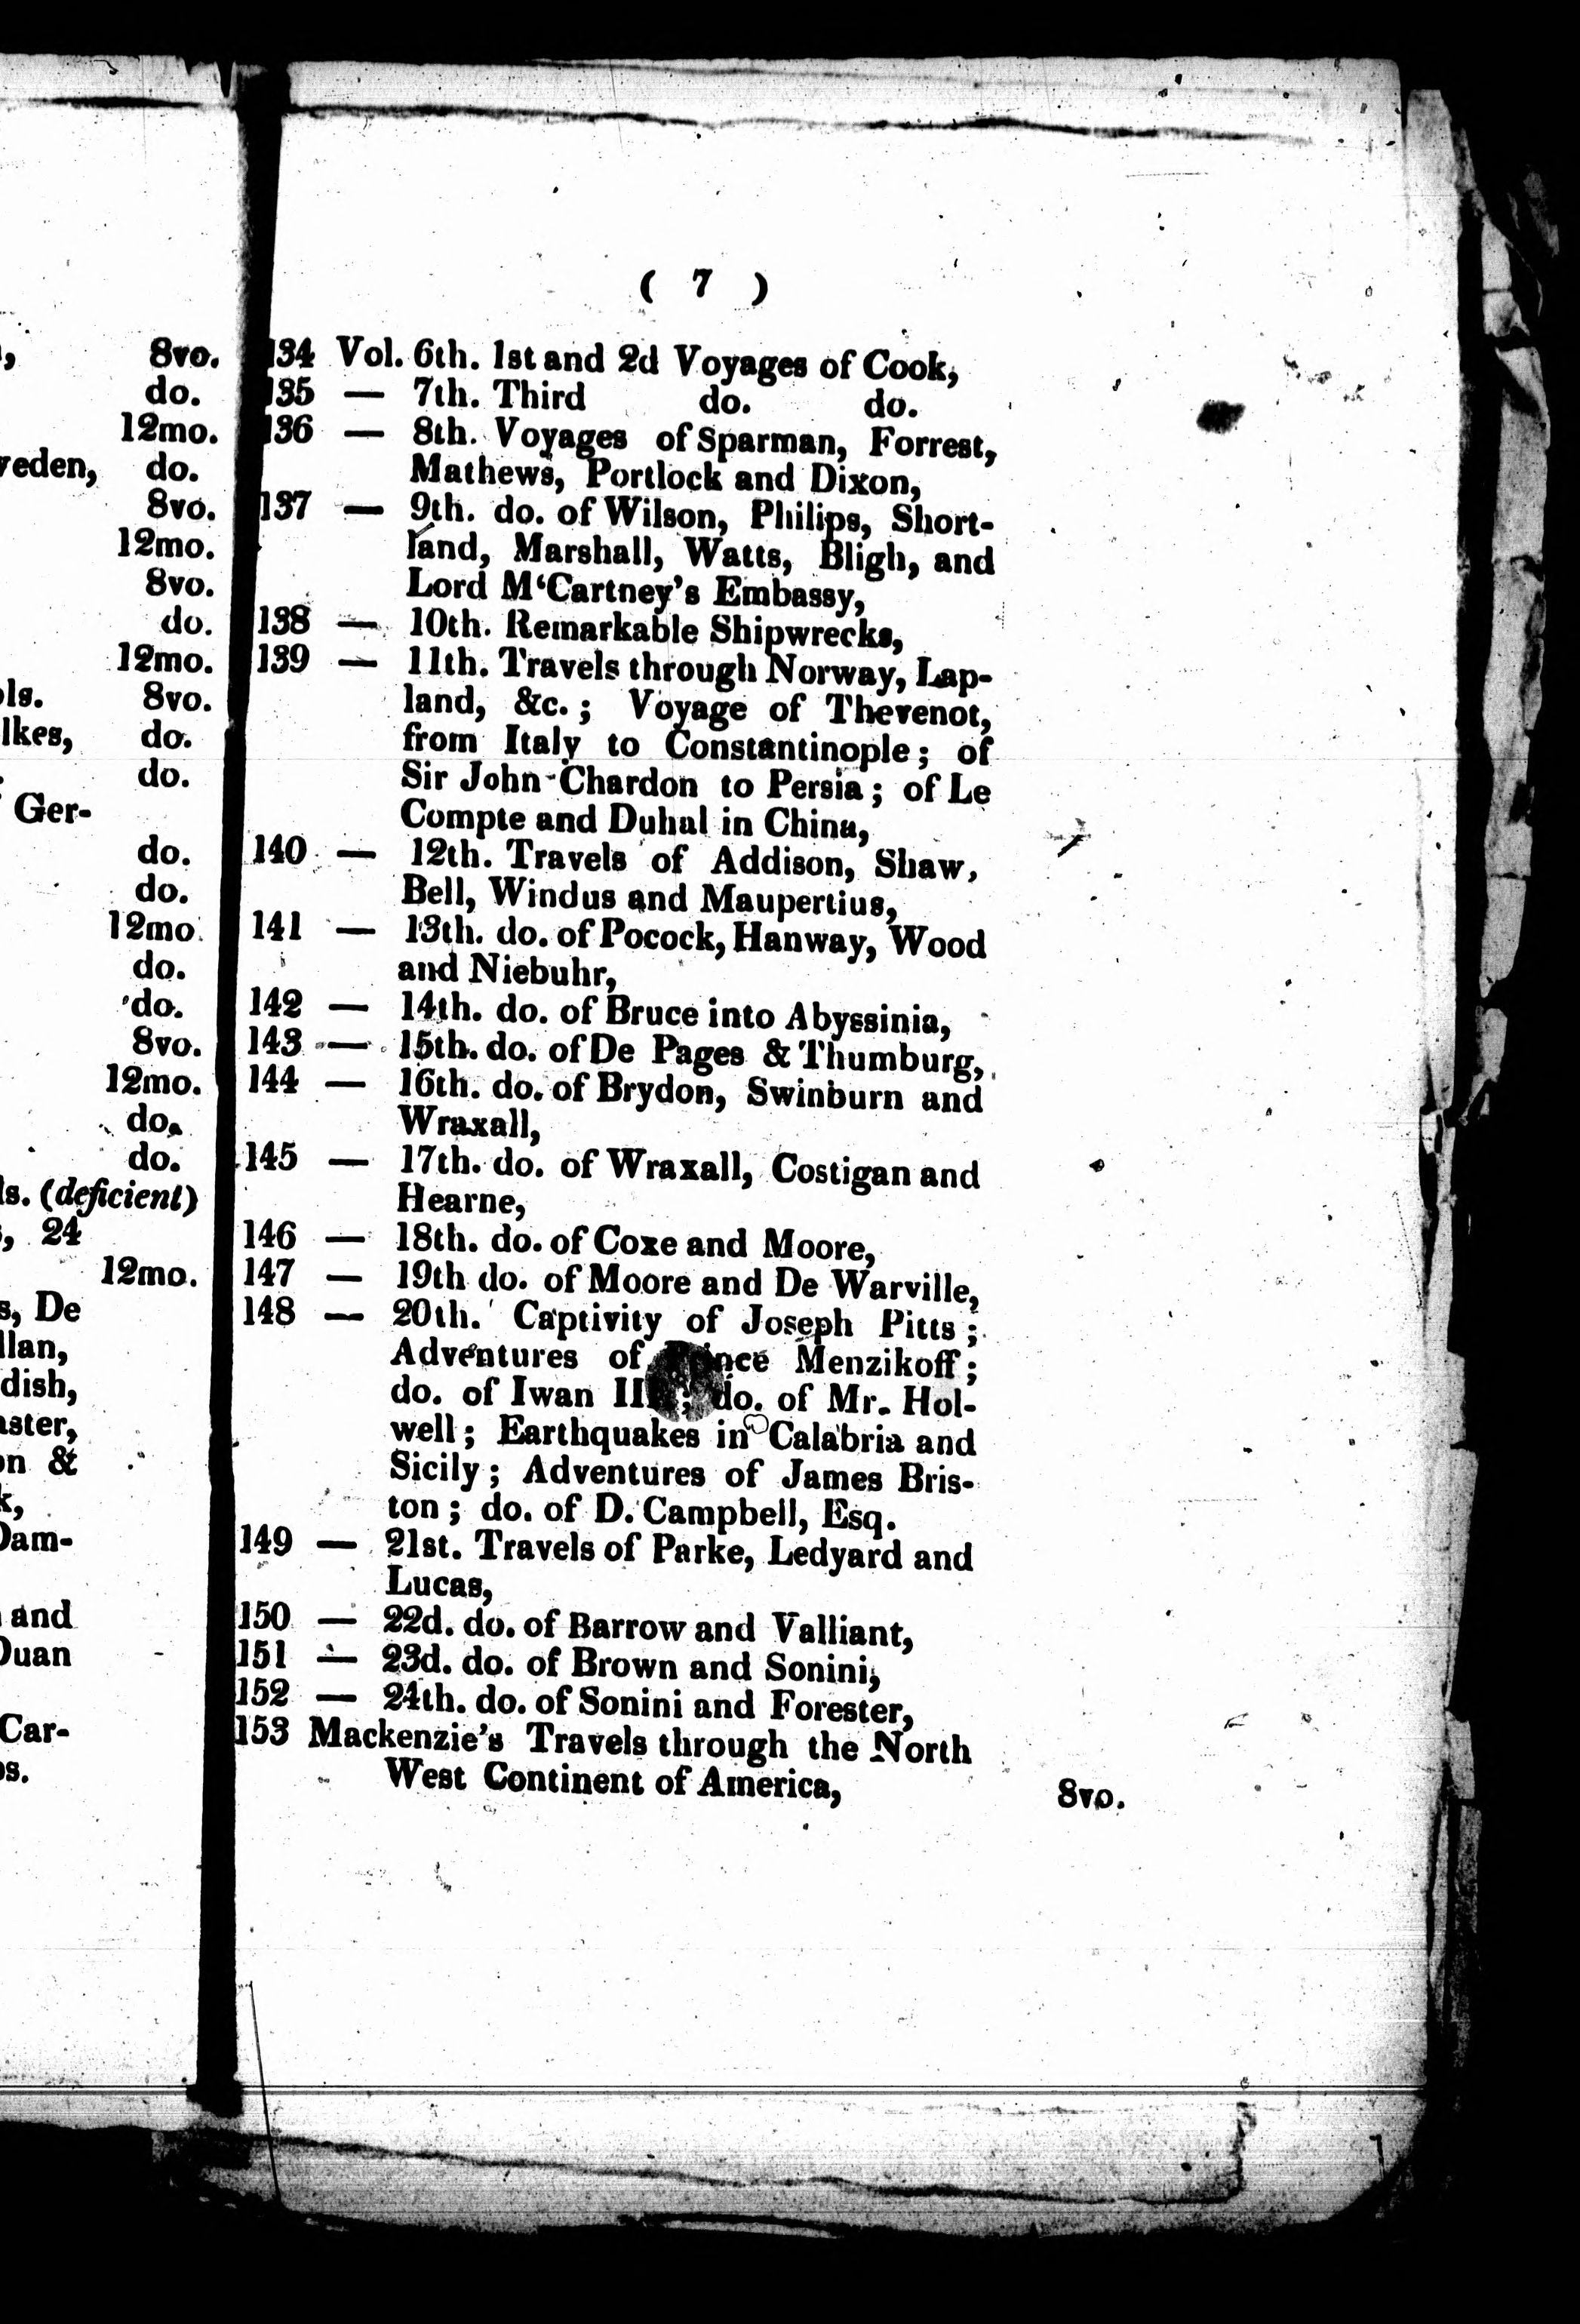 8vo.
do.
12mo.
do.
8vo.
12mo.
8vo.
do.
12mo.
8vo.
do.
do.
Ger-
do.
do.
12mo.
do.
do.
8vo.
12mo.
do.
do.
(deficient)
24
12mo.
De
and
Car-
( 7 )
134 Vol. 6th. 1st and 2d Voyages of Cook,
135 — 7th. Third do. do.
136 — 8th. Voyages of Sparman, Forrest,
Mathews, Portlock and Dixon,
137 — 9th. do. of Wilson, Philips, Short-
land, Marshall, Watts, Bligh, and
Lord M‘Cartney's Embassy,
138 — 10th. Remarkable Shipwrecks,
139 — 11th. Travels through Norway, Lap-
land, &c.; Voyage of Thevenot,
from Italy to Constantinople; of
Sir John Chardon to Persia; of Le
Compte and Duhal in China,
140 — 12th. Travels of Addison, Shaw,
Bell, Windus and Maupertius,
141 — 13th. do. of Pocock, Hanway, Wood
and Niebuhr,
142 — 14th. do. of Bruce into Abyssinia,
143 — 15th. do. of De Pages & Thumburg,
144 — 16th. do. of Brydon, Swinburn and
Wraxall,
145 — 17th. do. of Wraxall, Costigan and
Hearne,
146 — 18th. do. of Coxe and Moore,
147 — 19th do. of Moore and De Warville,
148 — 20th. Captivity of Joseph Pitts;
Adventures of Prince Menzikoff;
do. of Iwan do. of Mr. Hol-
well; Earthquakes in Calabria and
Sicily; Adventures of James Bris-
ton; do. of D. Campbell, Esq.
149 — 21st. Travels of Parke, Ledyard and
Lucas,
150 — 22d. do. of Barrow and Valliant,
151 — 23d. do. of Brown and Sonini,
152 — 24th. do. of Sonini and Forester,
153 Mackenzie's Travels through the North
West Continent of America, 8vo.